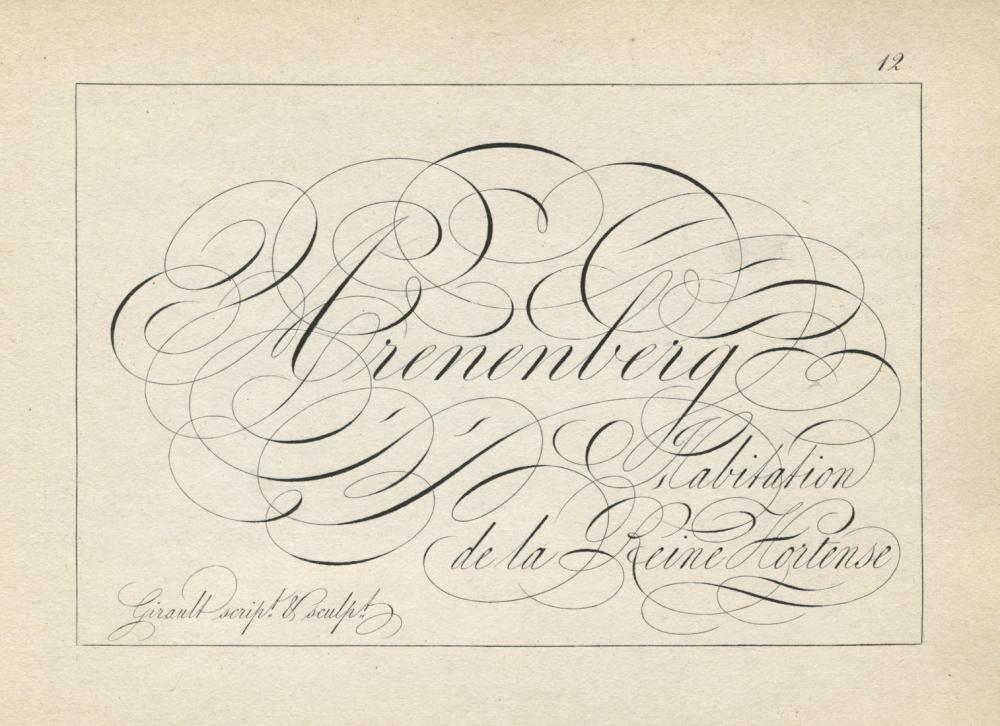 12
Arenenberg
Habitation
de la Reine Hortense
Girault scrip.t & sculp.t